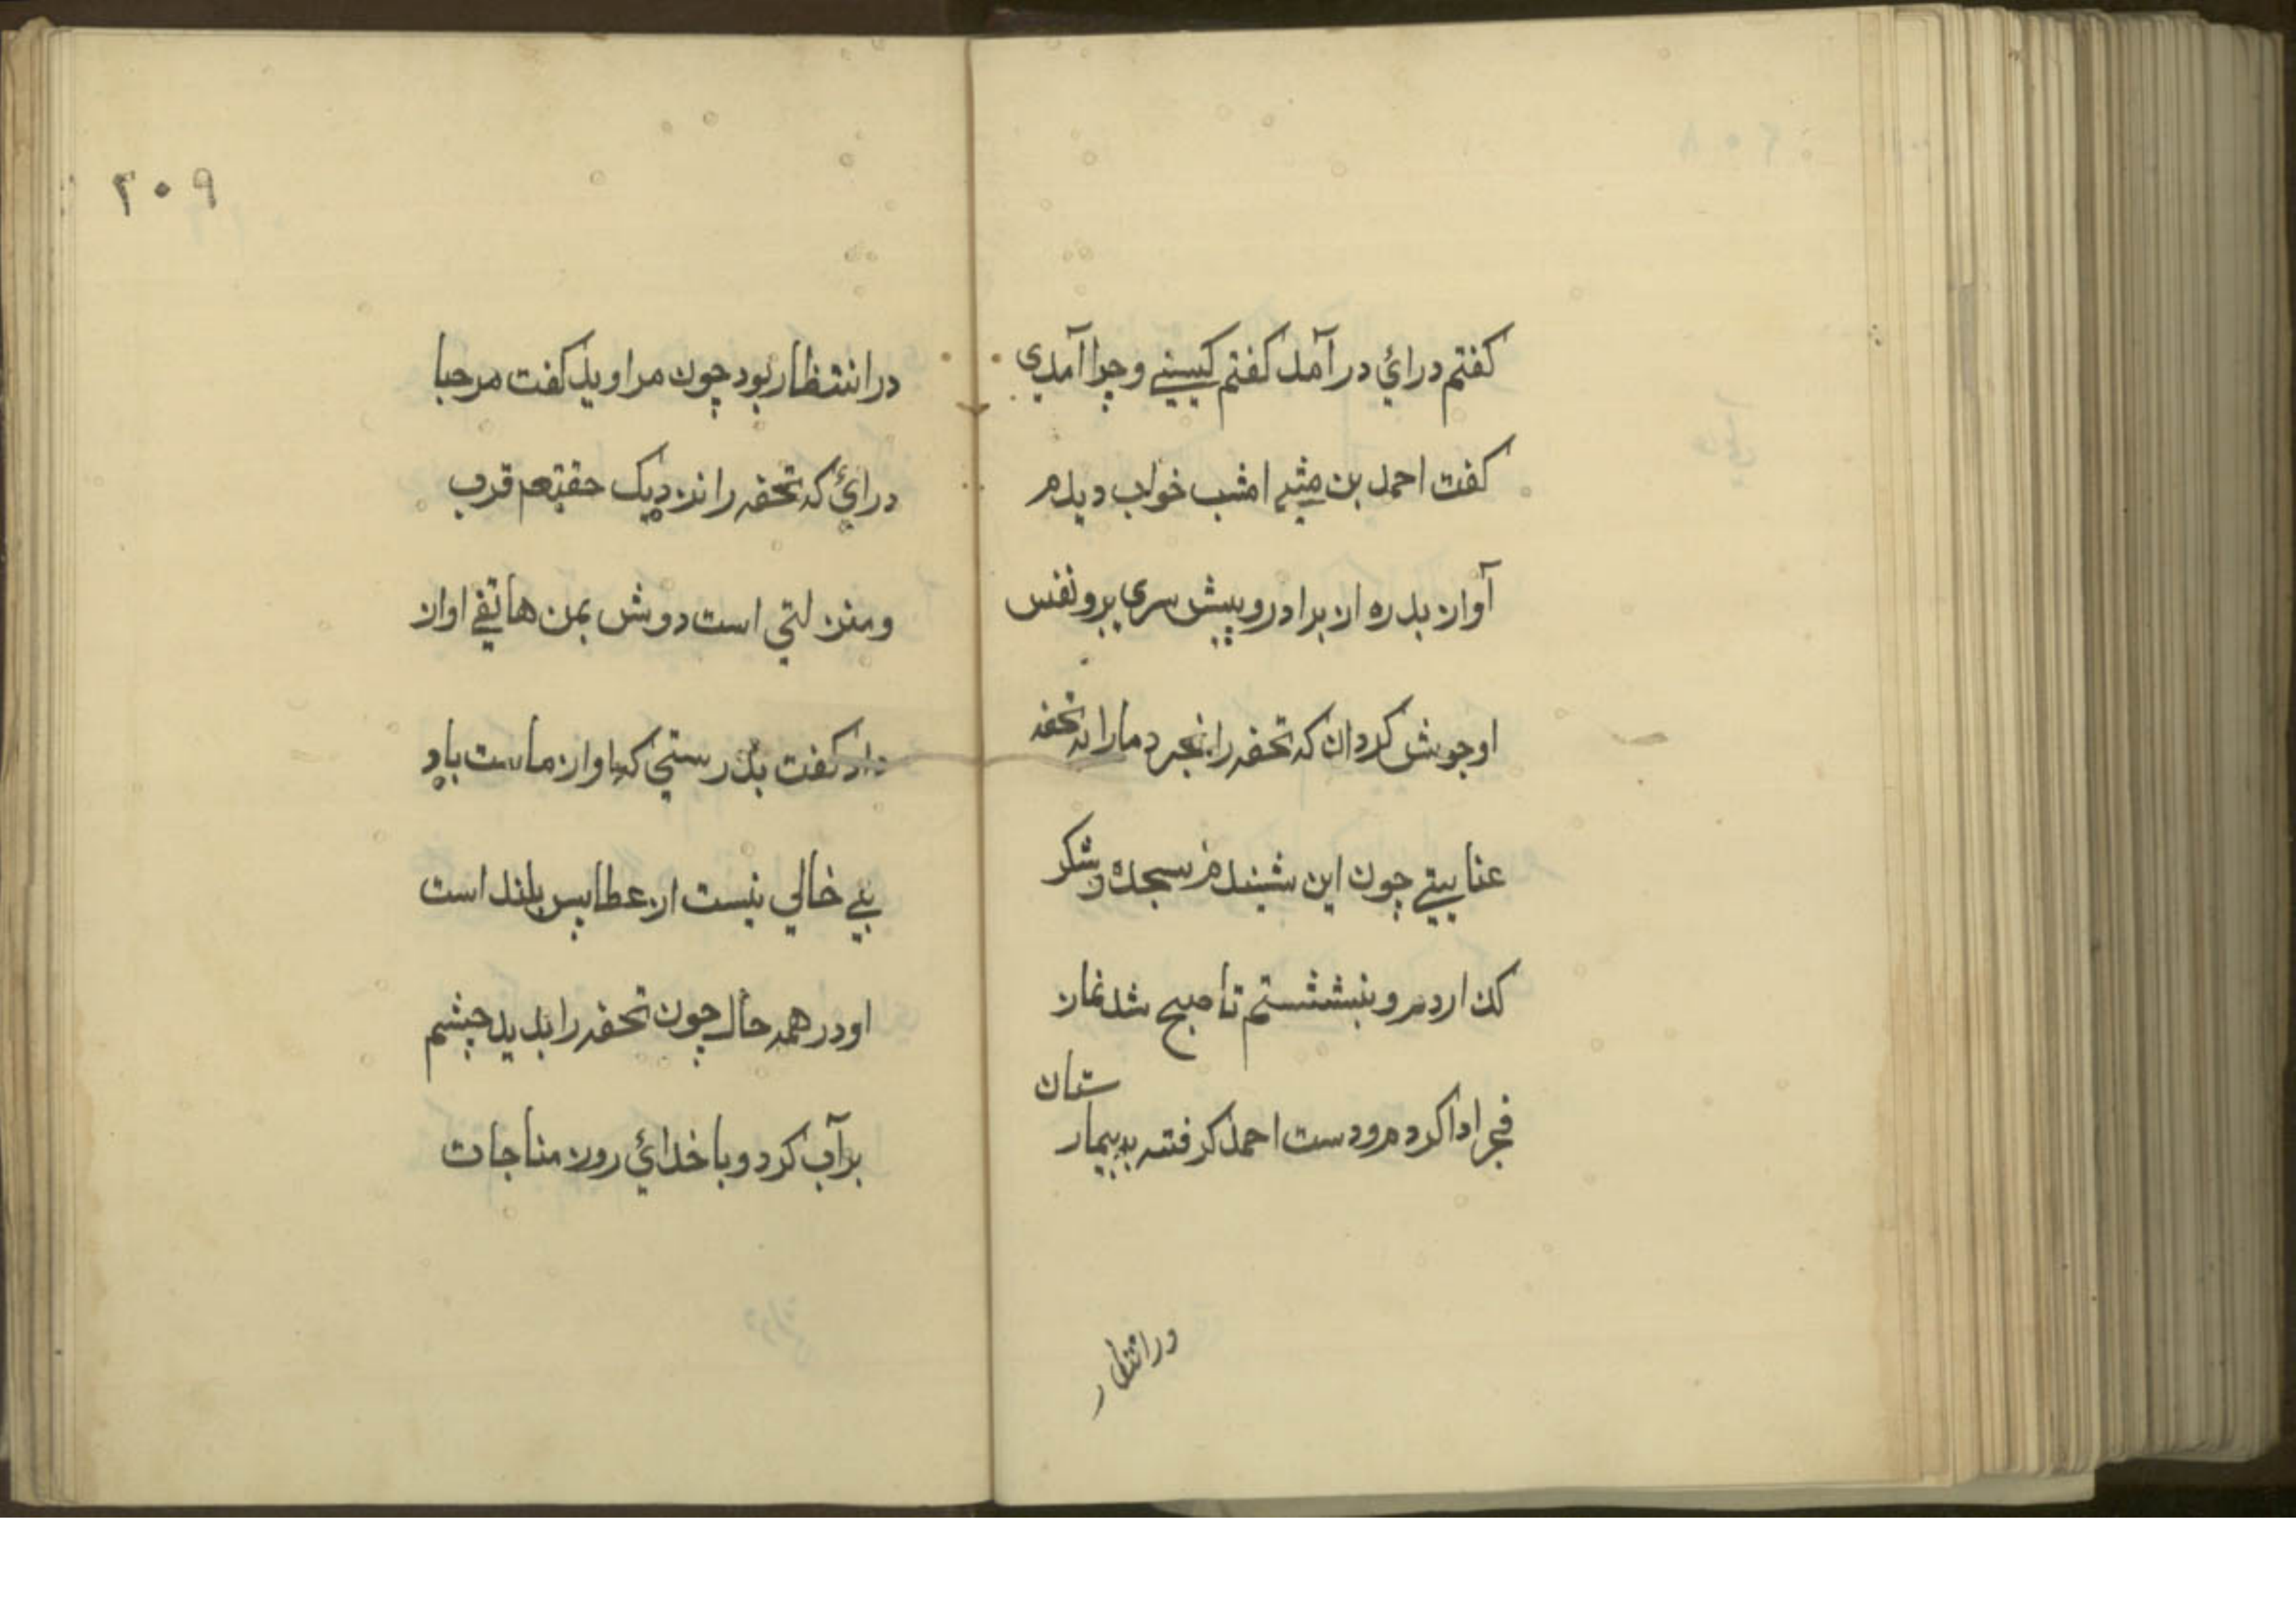 کفتم درائ درآمد کفتم کیستے وچرا آمدی
کفت احمد بن مثنے امشب خواب دیدم
آواز بدره از برادر و پیش سری برو نفس
او جوش کردان که تحفه را بخرد مارا به تحفه
عنایتے چون این شنیدم سجدۀ شکر
کذاردم و بنشستم تا صبح شد نماز
فجر ادا کردم و دست احمد کرفته به بیمار
ستان
در انتظار
۲۰۹
در انتظار بود چون مرا دید کفت مرحبا
درائ که تحفه را نزدیک حقتعم قرب
و منزلتی است دوش بمن هاتفے اواز
داد کفت بدرستی که او از ماست باو
بے خالی نیست از عطا بس بلند است
او در همه حال چون تحفه را بدید چشم
برآب کرد و با خدائ روز مناجات